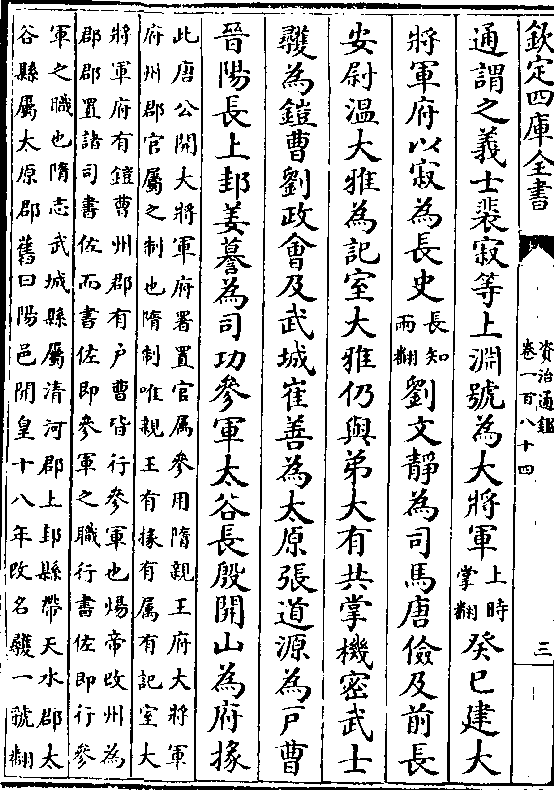 欽定四庫全書
資治通鑑
卷一百八十四
三
通謂之義士裴寂等上淵號為大將軍上時
掌翻癸巳建大
將軍府以寂為長史長知
兩翻劉文靜為司馬唐儉及前長
安尉温大雅為記室大雅仍與弟大有共掌機密武士
彠為鎧曹劉政會及武城崔善為太原張道源為戸曹
晉陽長上邽姜謩為司功參軍太谷長殷開山為府掾
此唐公開大將軍府署置官属參用隋親王府大將軍
府州郡官屬之制也隋制唯親王有掾有属有記室大
將軍府有鎧曹州郡有戸曹皆行參軍也煬帝改州為
郡郡置諸司書佐而書佐即參軍之職行書佐即行參
軍之職也隋志武城縣屬清河郡上邽縣帶天水郡太
谷縣屬太原郡舊曰陽邑開皇十八年改名彠一號翻